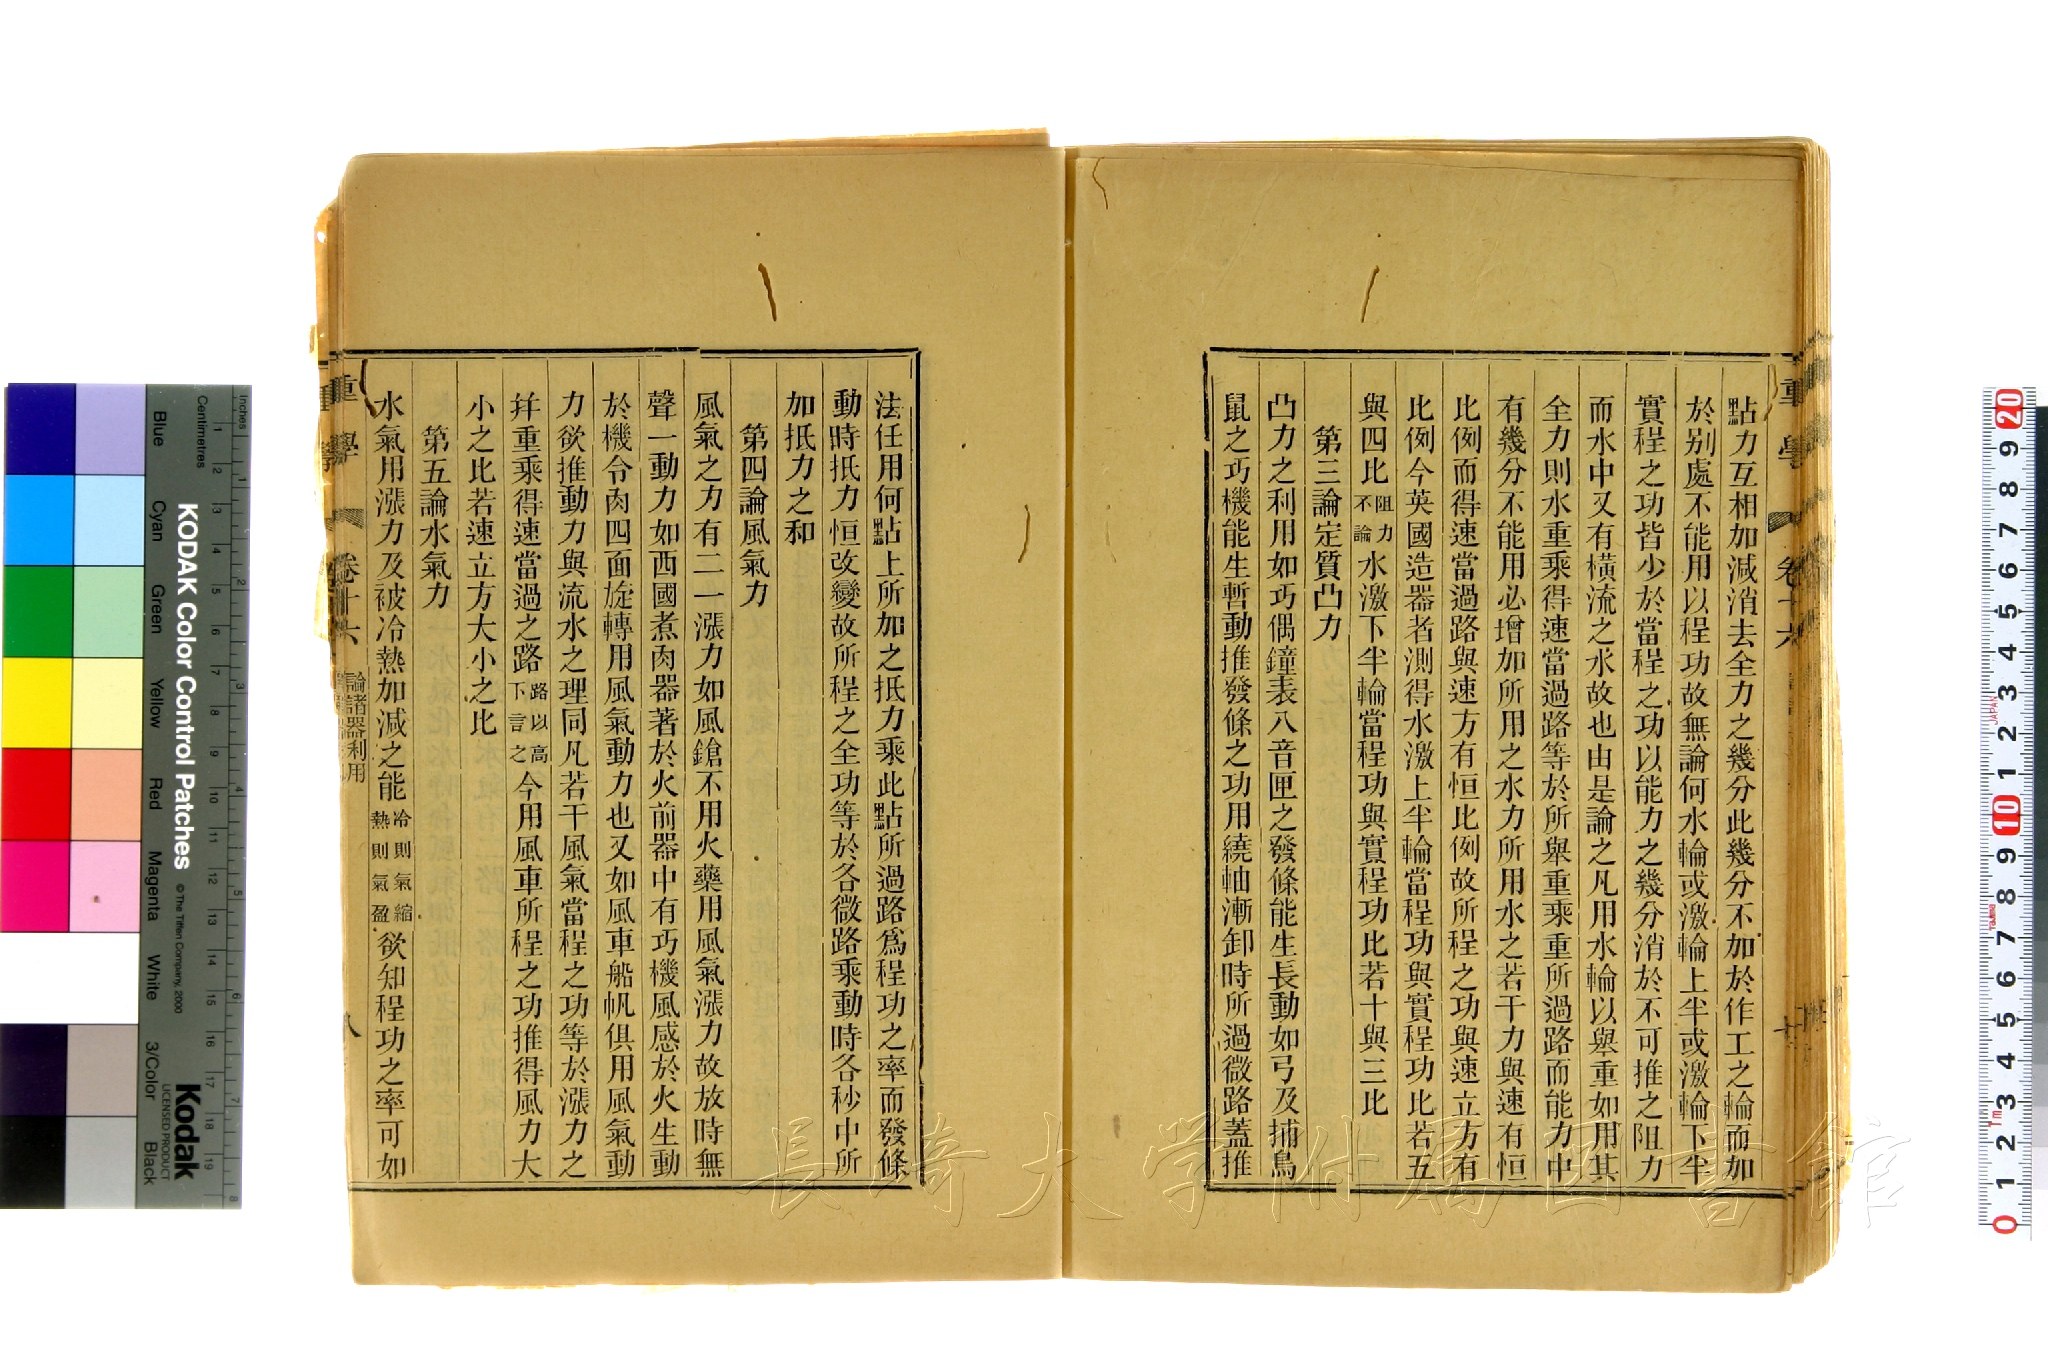 點力互相加減消去全力之幾分此幾分不加於作工之輪而加
於別處不能用以程功故無論何水輪或激輪上半或激輪下半
實程之功皆少於當程之功以能力之幾分消於不可推之阻力
而水中又有橫流之水故也由是論之凡用水輪以舉重如用其
全力則水重乘得速當過路等於所舉重乘重所過路而能力中
有幾分不能用必增加所用之水力所用水之若干力與速有恒
比例而得速當過路與速方有恒比例故所程之功與速立方有
比例今英國造器者測得水激上半輪當程功與實程功比若五
與四比阻力不論水激下半輪當程功與實程功比若十與三比
第三論定質凸力
凸力之利用如巧偶鐘表八音匣之發條能生長動如弓及捕鳥
鼠之巧機能生暫動推發條之功用繞軸漸卸時所過微路蓋推
法任用何點上所加之抵力乘此點所過路爲程功之率而發條
動時抵力恒改變故所程之全功等於各微路乘動時各秒中所
加抵力之和
第四論風氣力
風氣之力有二一漲力如風鎗不用火藥用風氣漲力故放時無
聲一動力如西國煮肉器著於火前器中有巧機風感於火生動
於機令肉四面旋轉用風氣動力也又如風車船帆俱用風氣動
力欲推動力與流水之理同凡若干風氣當程之功等於漲力之
并重乘得速當過之路路以高下言之今用風車所程之功推得風力大
小之比若速立方大小之比
第五論水氣力
水氣用漲力及被冷熱加減之能冷則氣縮熱則氣盈欲知程功之率可如
重學
卷十六
論諸器利用
八
KODAK Color Control Patches
© The Tiffen Company, 2000
Kodak
LICENSED PRODUCT
Inches
Centimetres
Blue
Cyan
Green
Yellow
Red
Magenta
White
3/Color
Black
長崎大学附属図書館